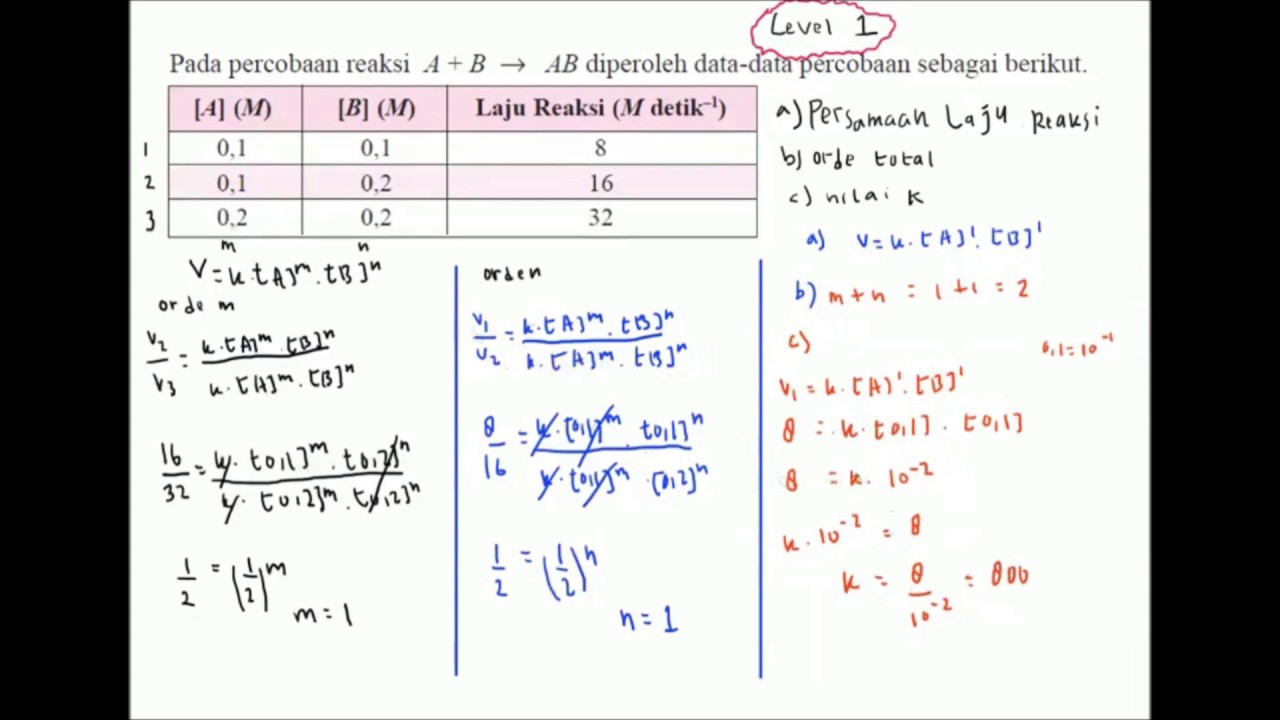 Level 1
Pada percobaan reaksi A + B → AB diperoleh data-data percobaan sebagai berikut.
[A] (M) [B] (M) Laju Reaksi (M detik⁻¹)
1 0,1 0,1 8
2 0,1 0,2 16
3 0,2 0,2 32
m n
V = k.[A]ᵐ.[B]ⁿ
orde m
V₂/V₃ = k.[A]ᵐ.[B]ⁿ / k.[A]ᵐ.[B]ⁿ
16/32 = k.[0,1]ᵐ.[0,2]ⁿ / k.[0,2]ᵐ.[0,2]ⁿ
1/2 = (1/2)ᵐ
m = 1
orden
V₁/V₂ = k.[A]ᵐ.[B]ⁿ / k.[A]ᵐ.[B]ⁿ
8/16 = k.[0,1]ᵐ.[0,1]ⁿ / k.[0,1]ᵐ.[0,2]ⁿ
1/2 = (1/2)ⁿ
n = 1
a) Persamaan Laju Reaksi
b) orde total
c) nilai k
a) V = k.[A]¹.[B]¹
b) m + n = 1 + 1 = 2
c)
0,1 = 10⁻¹
V₁ = k.[A]¹.[B]¹
8 = k.[0,1].[0,1]
8 = k. 10⁻²
k. 10⁻² = 8
k = 8/10⁻² = 800